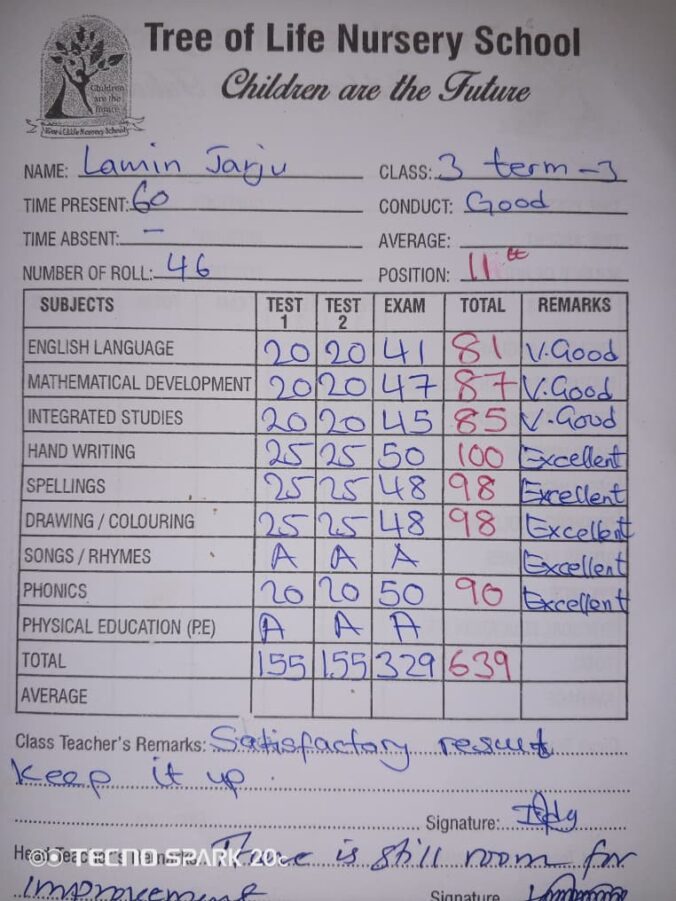 Children
are the
future
Tree of Life Nursery School
Tree of Life Nursery School
Children are the Future
NAME: Lamin Jarju CLASS: 3 term-3
TIME PRESENT: 60 CONDUCT: Good
TIME ABSENT: – AVERAGE:
NUMBER OF ROLL: 46 POSITION: 11th
SUBJECTS TEST 1 TEST 2 EXAM TOTAL REMARKS
ENGLISH LANGUAGE 20 20 41 81 V.Good
MATHEMATICAL DEVELOPMENT 20 20 47 87 V.Good
INTEGRATED STUDIES 20 20 45 85 V.Good
HAND WRITING 25 25 50 100 Excellent
SPELLINGS 25 25 48 98 Excellent
DRAWING / COLOURING 25 25 48 98 Excellent
SONGS / RHYMES A A A Excellent
PHONICS 20 20 50 90 Excellent
PHYSICAL EDUCATION (P.E) A A A
TOTAL 155 155 329 639
AVERAGE
Class Teacher's Remarks: Satisfactory result
keep it up.
Signature:
Head Teacher's Remarks: There is still room for
TECNO SPARK 20c
improvement Signature